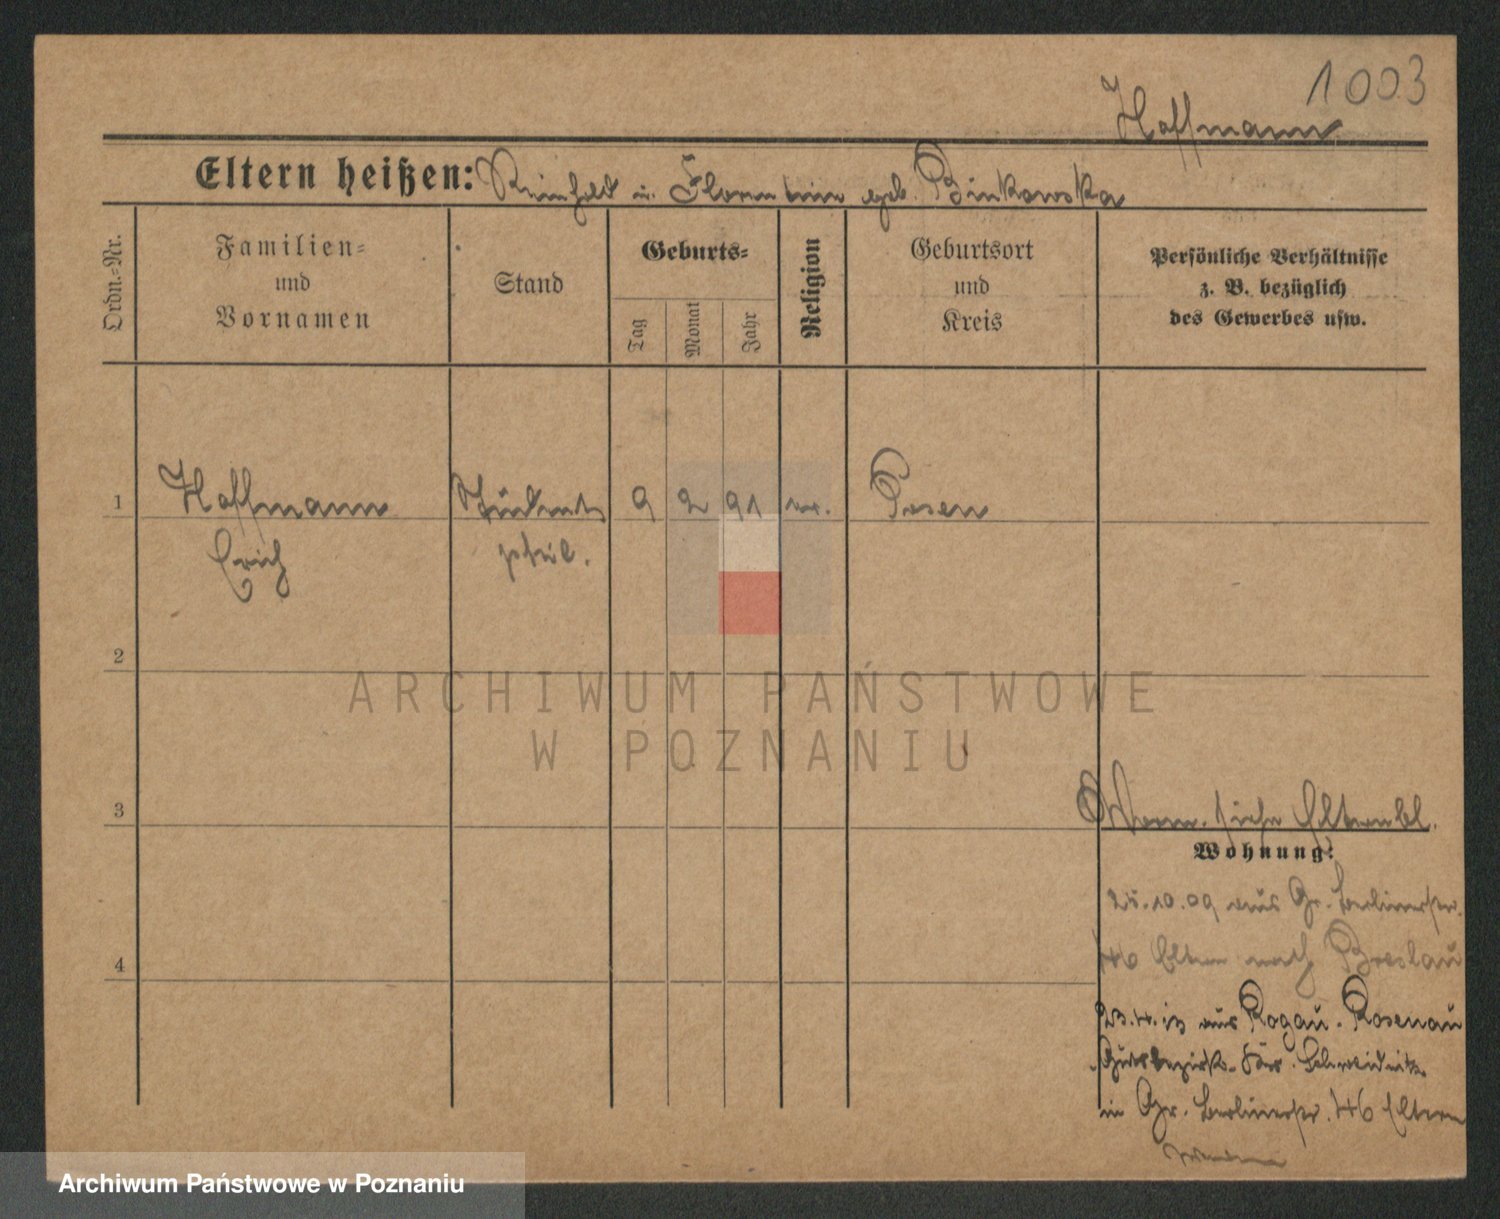 1003
Hoffmann
Eltern heißen: Reinhold u. Florentine geb. Binkowska
Ordn.-Nr.
Familien-
und
Vornamen
Stand
Geburts-
Tag
Monat
Jahr
Religion
Geburtsort
und
Kreis
Persönliche Verhältnisse
z. B. bezüglich
des Gewerbes usw.
1 Hoffmann Student 9 2 91 ev. Posen
Erich phil.
2
ARCHIWUM PAŃSTWOWE
W POZNANIU
3
Wom. siehe Elternbl.
Wohnung:
25.10.09 aus Gr. Berlinerstr.
46 Eltern nach Breslau
4
23.4.13 aus Rogau-Rosenau
Gutsbezirk Schweidnitz
in Gr. Berlinerstr. 46 Eltern
Archiwum Państwowe w Poznaniu